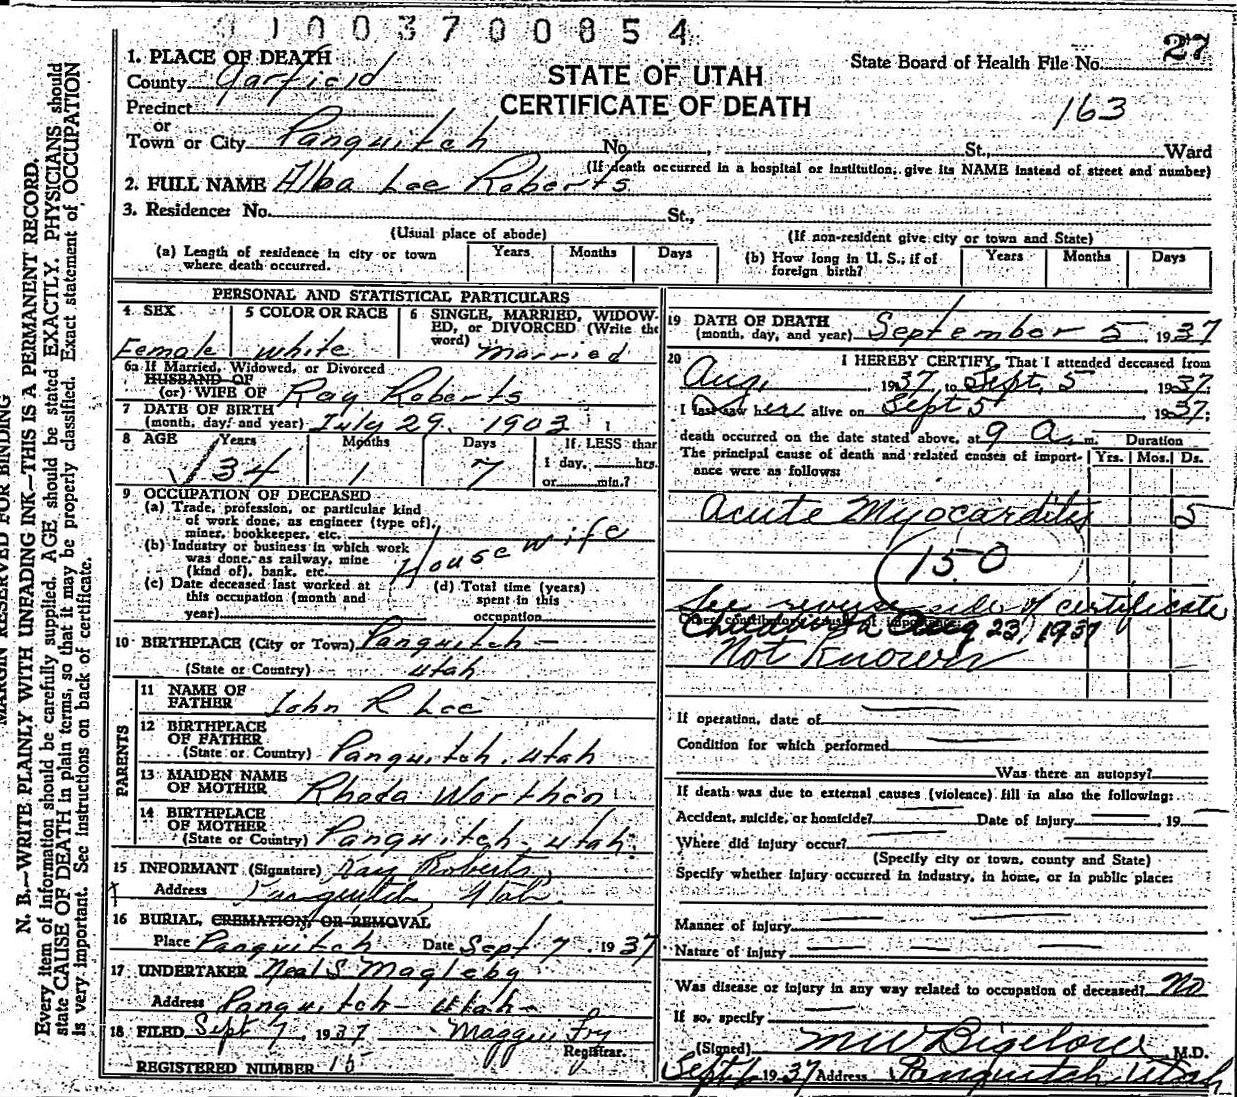 0100370 0854
27
1. PLACE OF DEATH
County Garfield
STATE OF UTAH
CERTIFICATE OF DEATH
State Board of Health File No.
163
Precinct
or
Town or City Panguitch No. , St., Ward
(If death occurred in a hospital or institution, give its NAME instead of street and number)
2. FULL NAME Alba Lee Roberts
3. Residence: No. St.,
(Usual place of abode) (If non-resident give city or town and State)
(a) Length of residence in city or town where death occurred. Years Months Days
(b) How long in U. S., if of foreign birth? Years Months Days
PERSONAL AND STATISTICAL PARTICULARS
4 SEX 5 COLOR OR RACE 6 SINGLE, MARRIED, WIDOW-
ED, or DIVORCED (Write the
word) Married
Female White
6a If Married, Widowed, or Divorced
HUSBAND OF
(or) WIFE OF Ray Roberts
7 DATE OF BIRTH
(month, day, and year) July 29. 1903
8 AGE Years Months Days If LESS than
34 1 7 1 day, hrs.
or min.?
9 OCCUPATION OF DECEASED
(a) Trade, profession, or particular kind
of work done, as engineer (type of),
miner, bookkeeper, etc.
House wife
(b) Industry or business in which work
was done, as railway, mine
(kind of), bank, etc.
(c) Date deceased last worked at
this occupation (month and
year)
(d) Total time (years)
spent in this
occupation
10 BIRTHPLACE (City or Town) Panguitch -
(State or Country) Utah
PARENTS
11 NAME OF
FATHER John R Lee
12 BIRTHPLACE
OF FATHER
(State or Country) Panguitch, Utah
13 MAIDEN NAME
OF MOTHER Rhoda Worthen
14 BIRTHPLACE
OF MOTHER
(State or Country) Panguitch, Utah.
15 INFORMANT (Signature) Ray Roberts
Address Panguitch, Utah.
16 BURIAL, CREMATION, OR REMOVAL
Place Panguitch Date Sept 7 1937
17 UNDERTAKER Neal S Magleby
Address Panguitch - Utah -
18 FILED Sept 7, 1937 Maggie Fry
Registrar.
REGISTERED NUMBER 15
19 DATE OF DEATH
(month, day, and year) September 5, 1937
20 I HEREBY CERTIFY, That I attended deceased from
Aug, 1937, to Sept. 5 1937
I last saw her alive on Sept 5 1937;
death occurred on the date stated above, at 9 a. m. Duration
The principal cause of death and related causes of import-
ance were as follows: Yrs. Mos. Ds.
Acute Myocarditis 5
150
See reverse side of certificate
Other contributory causes of importance:
Childbirth Aug 23, 1937
Not Known
If operation, date of
Condition for which performed
Was there an autopsy?
If death was due to external causes (violence) fill in also the following:
Accident, suicide, or homicide? Date of injury , 19
Where did injury occur?
(Specify city or town, county and State)
Specify whether injury occurred in industry, in home, or in public place:
Manner of injury
Nature of injury
Was disease or injury in any way related to occupation of deceased? No
If so, specify
(Signed) M W Bigelow M.D.
Sept 6 1937 Address Panguitch Utah
MARGIN RESERVED FOR BINDING
N. B.—WRITE PLAINLY WITH UNFADING INK—THIS IS A PERMANENT RECORD.
Every item of information should be carefully supplied. AGE should be stated EXACTLY. PHYSICIANS should
state CAUSE OF DEATH in plain terms, so that it may be properly classified. Exact statement of OCCUPATION
is very important. See instructions on back of certificate.